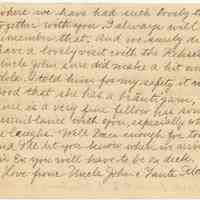 where we have had such lovely t
together with you. I always will
remember that, and we surely d
have a lovely visit with the
Uncle John sure did make a hit w
told him for my safety it w
good that she has a
is a very fine fellow his
resemblance with you, especially w
laughs. Well Dear enough for to
and I'll let you know when is
so Ev you will have to be on deck.
Love from Uncle John & Tante